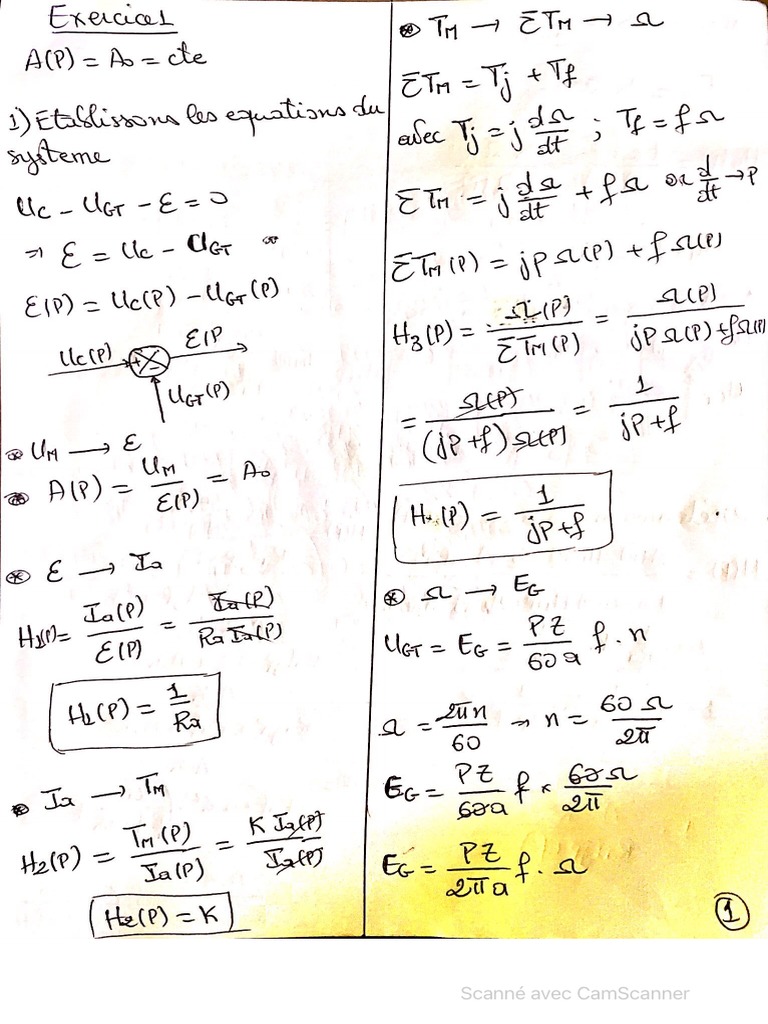 Exercice1
A(P) = A₀ = cte
1) Etablissons les equations du
systeme
Uc - U_GT - Ɛ = 0
⇒ Ɛ = Uc - U_GT or
Ɛ(P) = Uc(P) - U_GT(P)
Uc(P) + - Ɛ(P
U_GT(P)
⊛ U_M → Ɛ
⊛ A(P) = U_M / Ɛ(P) = A₀
⊛ Ɛ → Ia
H₁(P) = Ia(P) / Ɛ(P) = Ia(P) / Ra Ia(P)
H₁(P) = 1 / Ra
⊛ Ia → T_M
H₂(P) = T_M(P) / Ia(P) = K Ia(P) / Ia(P)
H₂(P) = K
⊛ T_M → ΣT_M → Ω
ΣT_M = Tj + Tf
avec Tj = j dΩ/dt ; Tf = f Ω
ΣT_M = j dΩ/dt + f Ω or d/dt → P
ΣT_M(P) = jP Ω(P) + f Ω(P)
H₃(P) = Ω(P) / ΣT_M(P) = Ω(P) / jP Ω(P) + f Ω(P)
= Ω(P) / (jP + f) Ω(P) = 1 / jP + f
(P) = 1 / jP + f
⊛ Ω → E_G
U_GT = E_G = PZ / 60a f . n
Ω = 2πn / 60 → n = 60 Ω / 2π
E_G = PZ / 60a f × 60 Ω / 2π
E_G = PZ / 2πa f . Ω
1
Scanné avec CamScanner